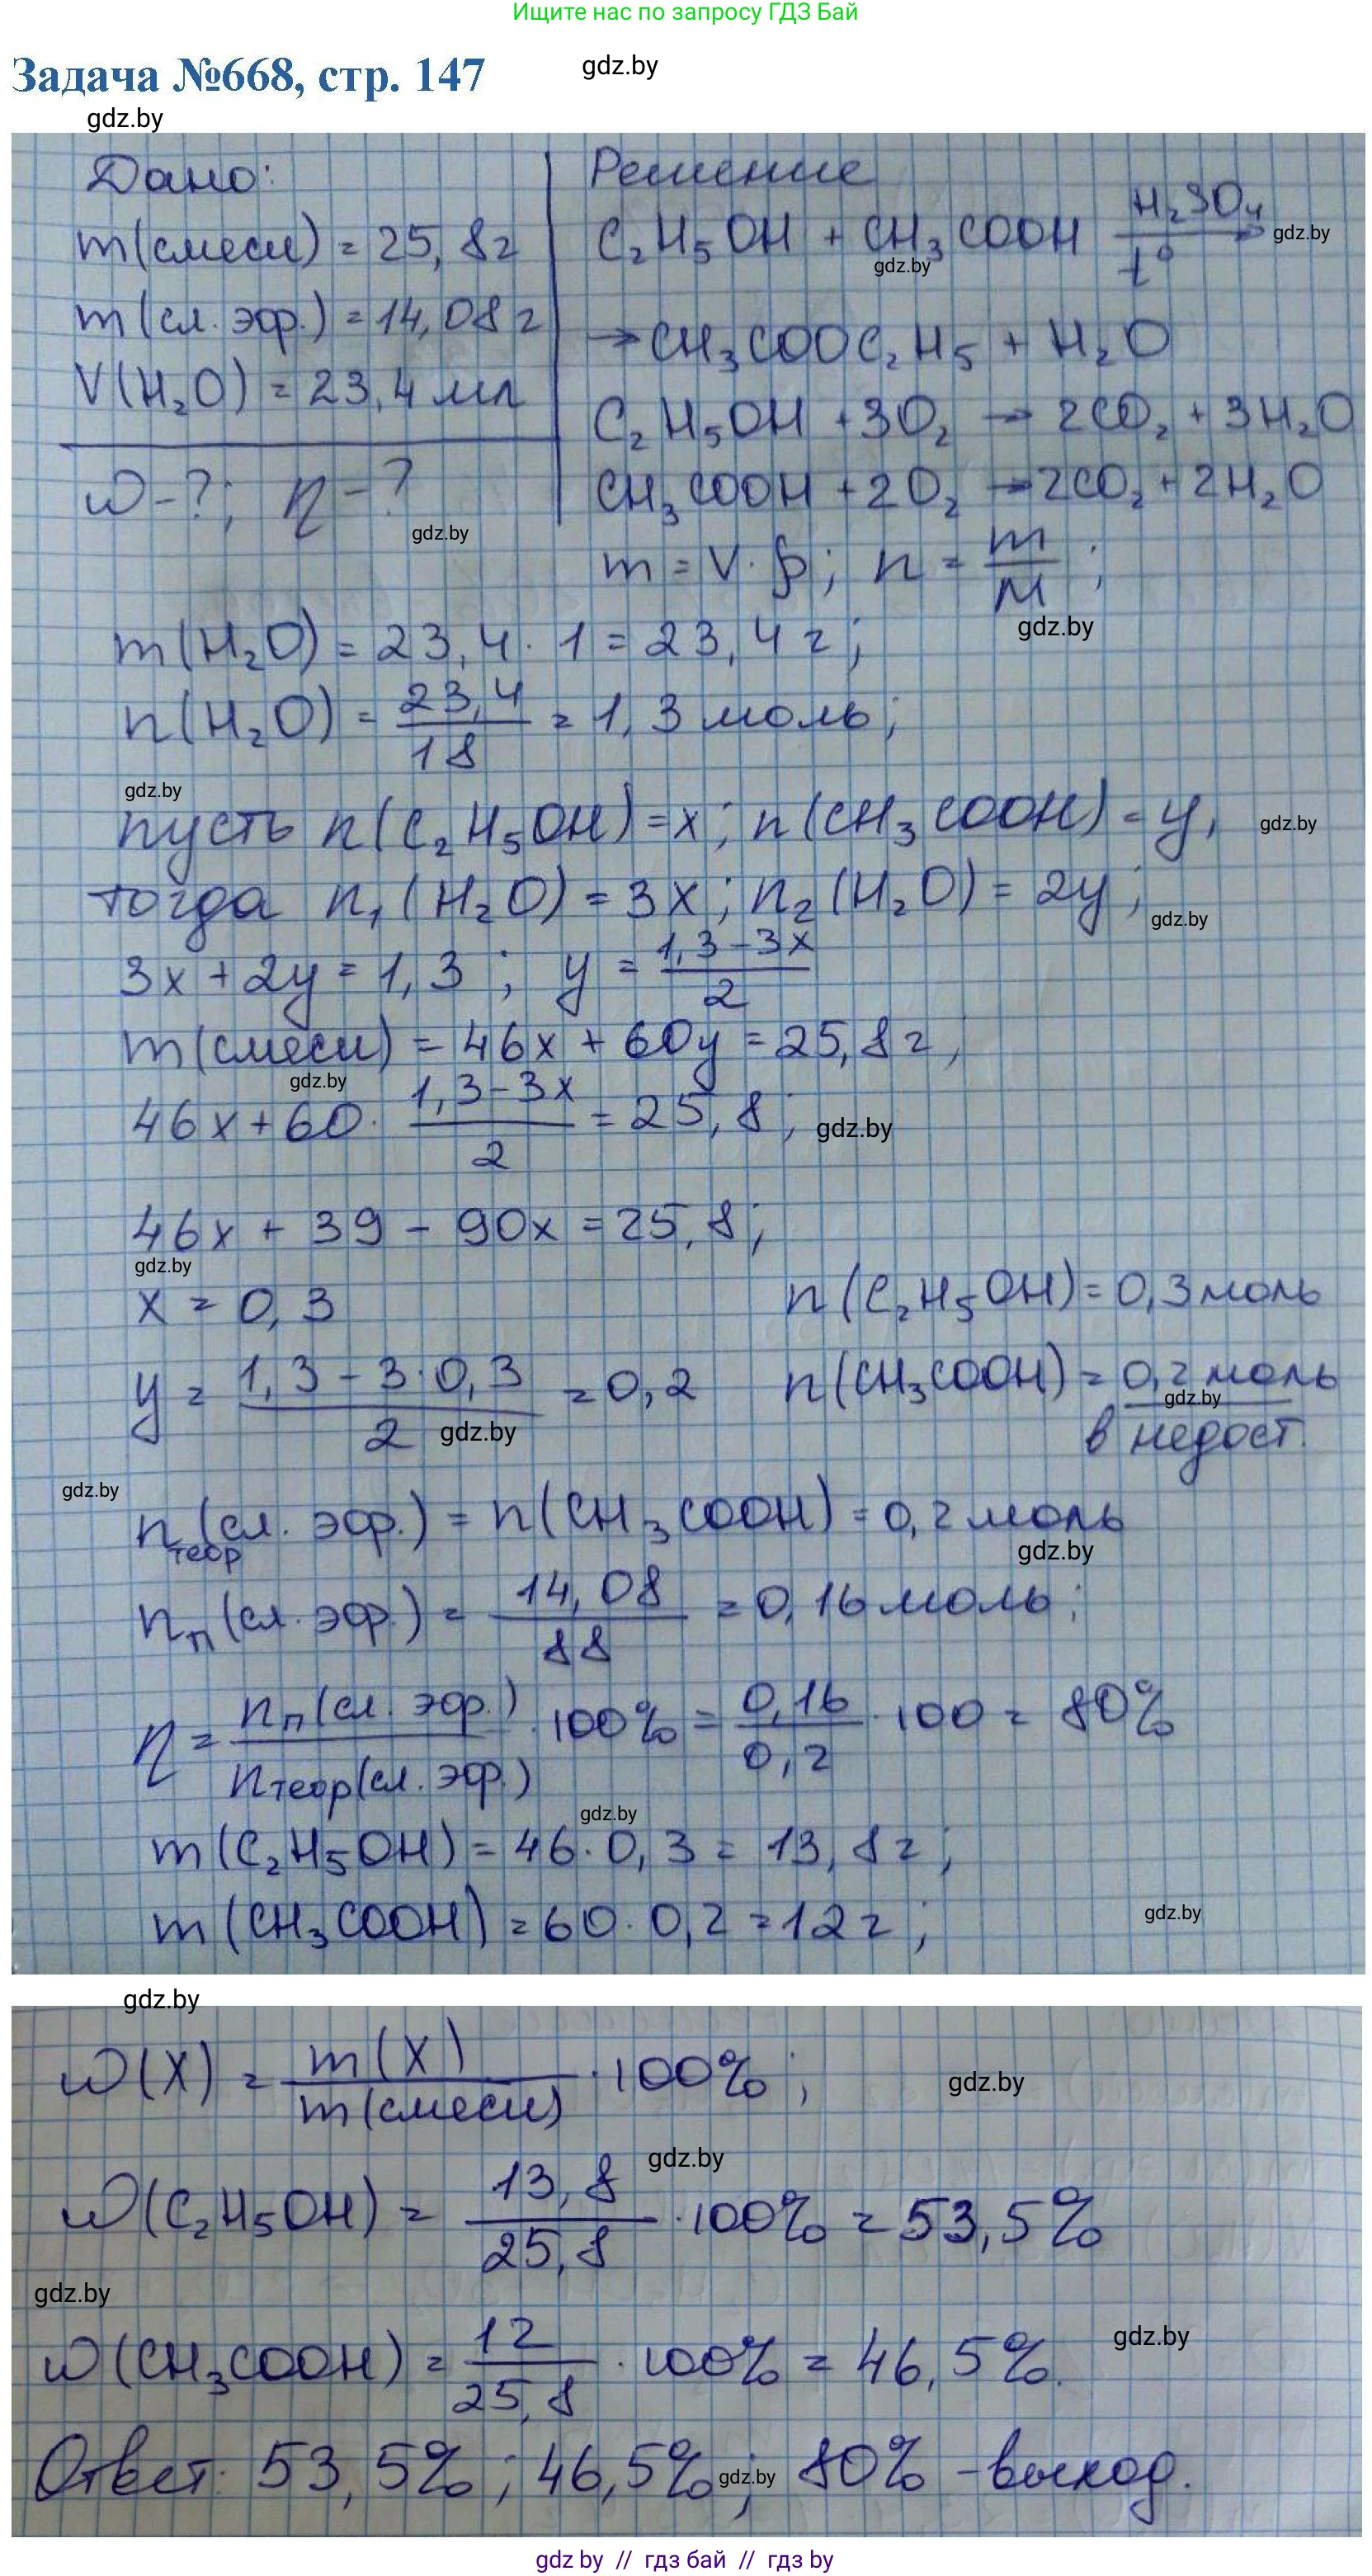 Ищите нас по запросу ГДЗ Бай
Задача №668, стр. 147
gdz.by
gdz.by
Дано:
m(смеси) = 25,8г
m(сл. эфр.) = 14,08г
V(H₂O) = 23,4 мл
ω-?; η-?
gdz.by
Решение
C₂H₅OH + CH₃COOH H₂SO₄ t° →
gdz.by
gdz.by
→ CH₃COOC₂H₅ + H₂O
C₂H₅OH + 3O₂ → 2CO₂ + 3H₂O
CH₃COOH + 2O₂ → 2CO₂ + 2H₂O
m = V·ρ; n = m/M;
gdz.by
m(H₂O) = 23,4 · 1 = 23,4 г;
n(H₂O) = 23,4/18 = 1,3 моль;
gdz.by
пусть n(C₂H₅OH) = x; n(CH₃COOH) = y,
gdz.by
тогда n₁(H₂O) = 3x; n₂(H₂O) = 2y;
gdz.by
3x + 2y = 1,3; y = (1,3 - 3x)/2
m(смеси) = 46x + 60y = 25,8г;
gdz.by
46x + 60 · (1,3 - 3x)/2 = 25,8;
gdz.by
46x + 39 - 90x = 25,8;
gdz.by
x = 0,3 n(C₂H₅OH) = 0,3 моль
y = (1,3 - 3·0,3)/2 = 0,2 n(CH₃COOH) = 0,2 моль
gdz.by
gdz.by
в недост.
gdz.by
n теор (сл. эфр.) = n(CH₃COOH) = 0,2 моль
gdz.by
nп (сл. эфр.) = 14,08/88 = 0,16 моль;
η = nп (сл. эфр.)/nтеор(сл. эфр.) · 100% = 0,16/0,2 · 100 = 80%
gdz.by
m(C₂H₅OH) = 46·0,3 = 13,8г;
m(CH₃COOH) = 60·0,2 = 12г;
gdz.by
gdz.by
ω(X) = m(X)/m(смеси) · 100%;
gdz.by
gdz.by
ω(C₂H₅OH) = 13,8/25,8 · 100% = 53,5%
gdz.by
ω(CH₃COOH) = 12/25,8 · 100% = 46,5%.
gdz.by
Ответ: 53,5%; 46,5%; 80% - выход.
gdz.by
gdz by // гдз бай // гдз by